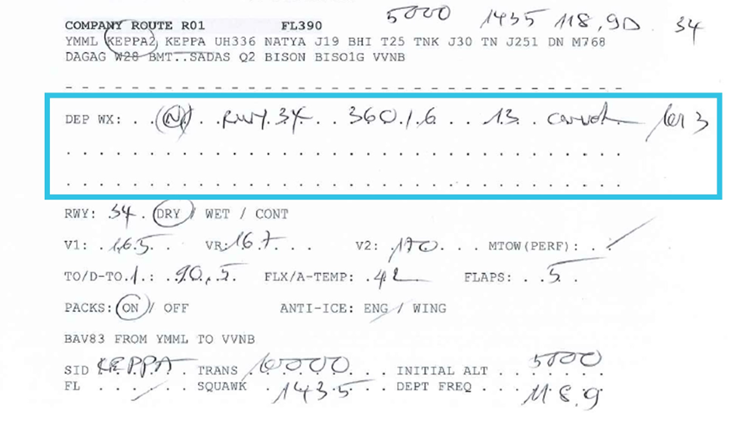 5000 1435 118.9D 34
COMPANY ROUTE R01 FL390
YMML KEPPA2 KEPPA UH336 NATYA J19 BHI T25 TNK J30 TN J251 DN M768
DAGAG W28 BMT..SADAS Q2 BISON BISO1G VVNB
DEP WX: . . (N) . . RWY.34 . . 360./.6 . . 13
RWY: 34 . DRY / WET / CONT
V1: .165. . VR:167. . . V2: .170. . . MTOW(PERF): . . /
TO/D-TO.1.: .90.5 FLX/A-TEMP: .42 FLAPS: . .5. .
PACKS: ON / OFF ANTI-ICE: ENG / WING
BAV83 FROM YMML TO VVNB
SID KEPPA TRANS 10000 INITIAL ALT 5000
FL . . / . . SQUAWK 1435 DEPT FREQ 118.9